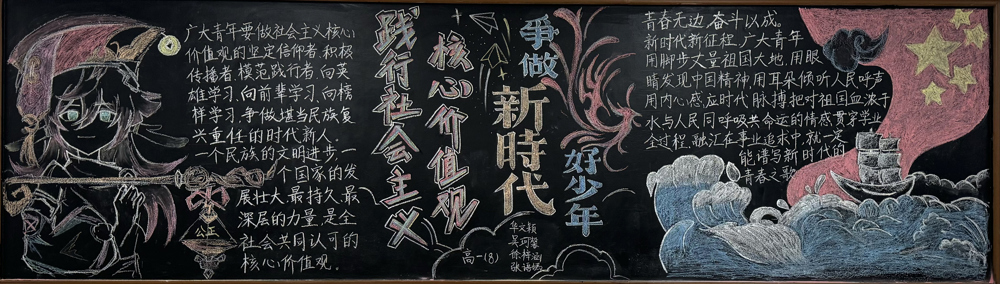 广大青年要做社会主义核心
价值观的坚定信仰者、积极
传播者、模范践行者，向英
雄学习、向前辈学习、向榜
样学习，争做堪当民族复
兴重任的时代新人。
一个民族的文明进步，一
个国家的发
展壮大，最持久、最
深层的力量是全
社会共同认可的
核心价值观。
公正
践行社会主义
核心价值观
争做
新時代
好少年
高一(8)
青春无边，奋斗以成。
新时代新征程，广大青年
用脚步丈量祖国大地，用眼
睛发现中国精神，用耳朵倾听人民呼声，
用内心感应时代脉搏，把对祖国血浓于
水、与人民同呼吸共命运的情感贯穿学业
全过程、融汇在事业追求中，就一定
能谱写新时代的
青春之歌